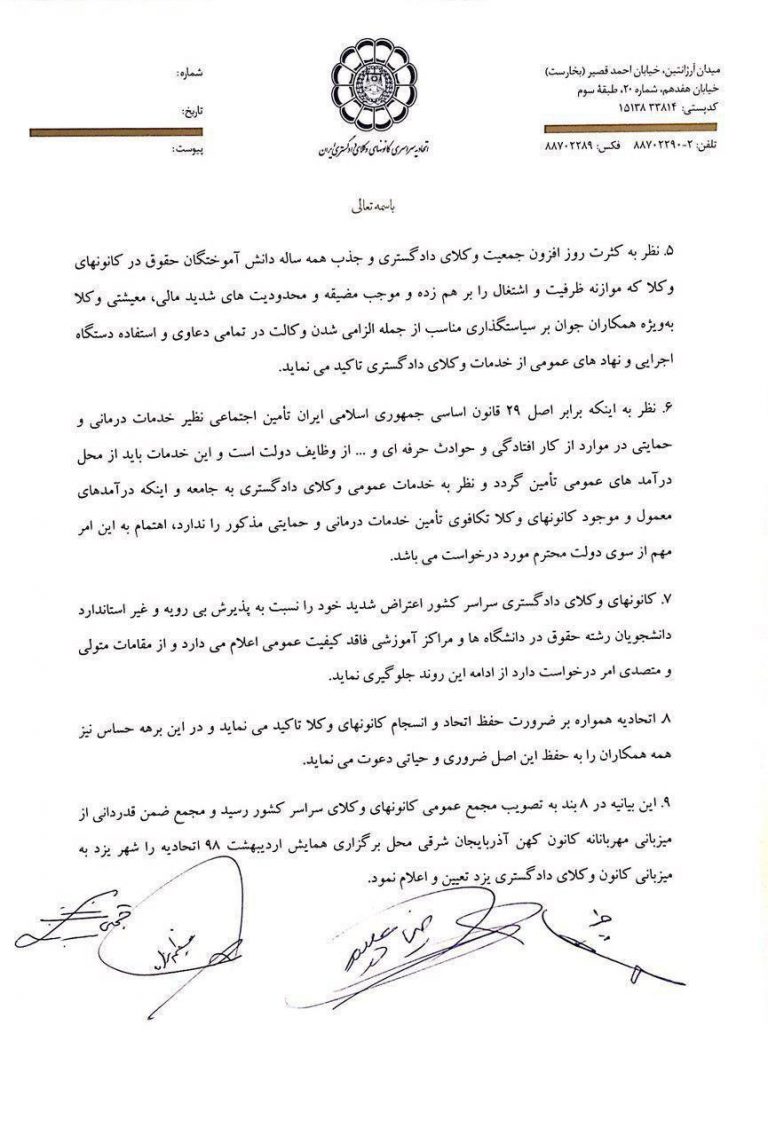 میدان آرژانتین، خیابان احمد قصیر (بخارست)
خیابان هفدهم، شماره ۲۰، طبقۀ سوم
کدپستی: ۳۳۸۱۴ ۱۵۱۳۸
تلفن: ۲-۸۸۷۰۲۲۹۰ فکس: ۸۸۷۰۲۲۸۹
اتحادیه سراسری کانونهای وکلای دادگستری ایران
شماره:
تاریخ:
پیوست:
باسمه تعالی
۵. نظر به کثرت روز افزون جمعیت وکلای دادگستری و جذب همه ساله دانش آموختگان حقوق در کانونهای
وکلا که موازنه ظرفیت و اشتغال را بر هم زده و موجب مضیقه و محدودیت های شدید مالی، معیشتی وکلا
به‌ویژه همکاران جوان بر سیاستگذاری مناسب از جمله الزامی شدن وکالت در تمامی دعاوی و استفاده دستگاه
اجرایی و نهاد های عمومی از خدمات وکلای دادگستری تاکید می نماید.
۶. نظر به اینکه برابر اصل ۲۹ قانون اساسی جمهوری اسلامی ایران تأمین اجتماعی نظیر خدمات درمانی و
حمایتی در موارد از کار افتادگی و حوادث حرفه ای و ... از وظایف دولت است و این خدمات باید از محل
درآمد های عمومی تأمین گردد و نظر به خدمات عمومی وکلای دادگستری به جامعه و اینکه درآمدهای
معمول و موجود کانونهای وکلا تکافوی تأمین خدمات درمانی و حمایتی مذکور را ندارد، اهتمام به این امر
مهم از سوی دولت محترم مورد درخواست می باشد.
۷. کانونهای وکلای دادگستری سراسر کشور اعتراض شدید خود را نسبت به پذیرش بی رویه و غیر استاندارد
دانشجویان رشته حقوق در دانشگاه ها و مراکز آموزشی فاقد کیفیت عمومی اعلام می دارد و از مقامات متولی
و متصدی امر درخواست دارد از ادامه این روند جلوگیری نماید.
۸. اتحادیه همواره بر ضرورت حفظ اتحاد و انسجام کانونهای وکلا تاکید می نماید و در این برهه حساس نیز
همه همکاران را به حفظ این اصل ضروری و حیاتی دعوت می نماید.
۹. این بیانیه در ۸ بند به تصویب مجمع عمومی کانونهای وکلای سراسر کشور رسید و مجمع ضمن قدردانی از
میزبانی مهربانانه کانون کهن آذربایجان شرقی محل برگزاری همایش اردیبهشت ۹۸ اتحادیه را شهر یزد به
میزبانی کانون وکلای دادگستری یزد تعیین و اعلام نمود.